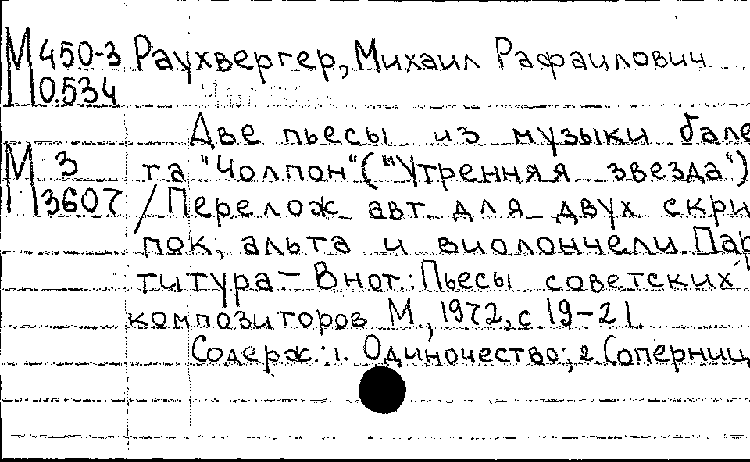 М 450-3 Раухвергер, Михаил Рафаилович
М 0534
Две пьесы из музыки бале
М 3 та "Чолпон" ("Утренняя звезда")
М 3607 /Перелож. авт. для двух скри
пок, альта и виолончели. Пар
титура.- В нот.: Пьесы советских
композиторов М., 1972, с. 19-21.
Содерж.: 1. Одиночество; 2. Соперниц